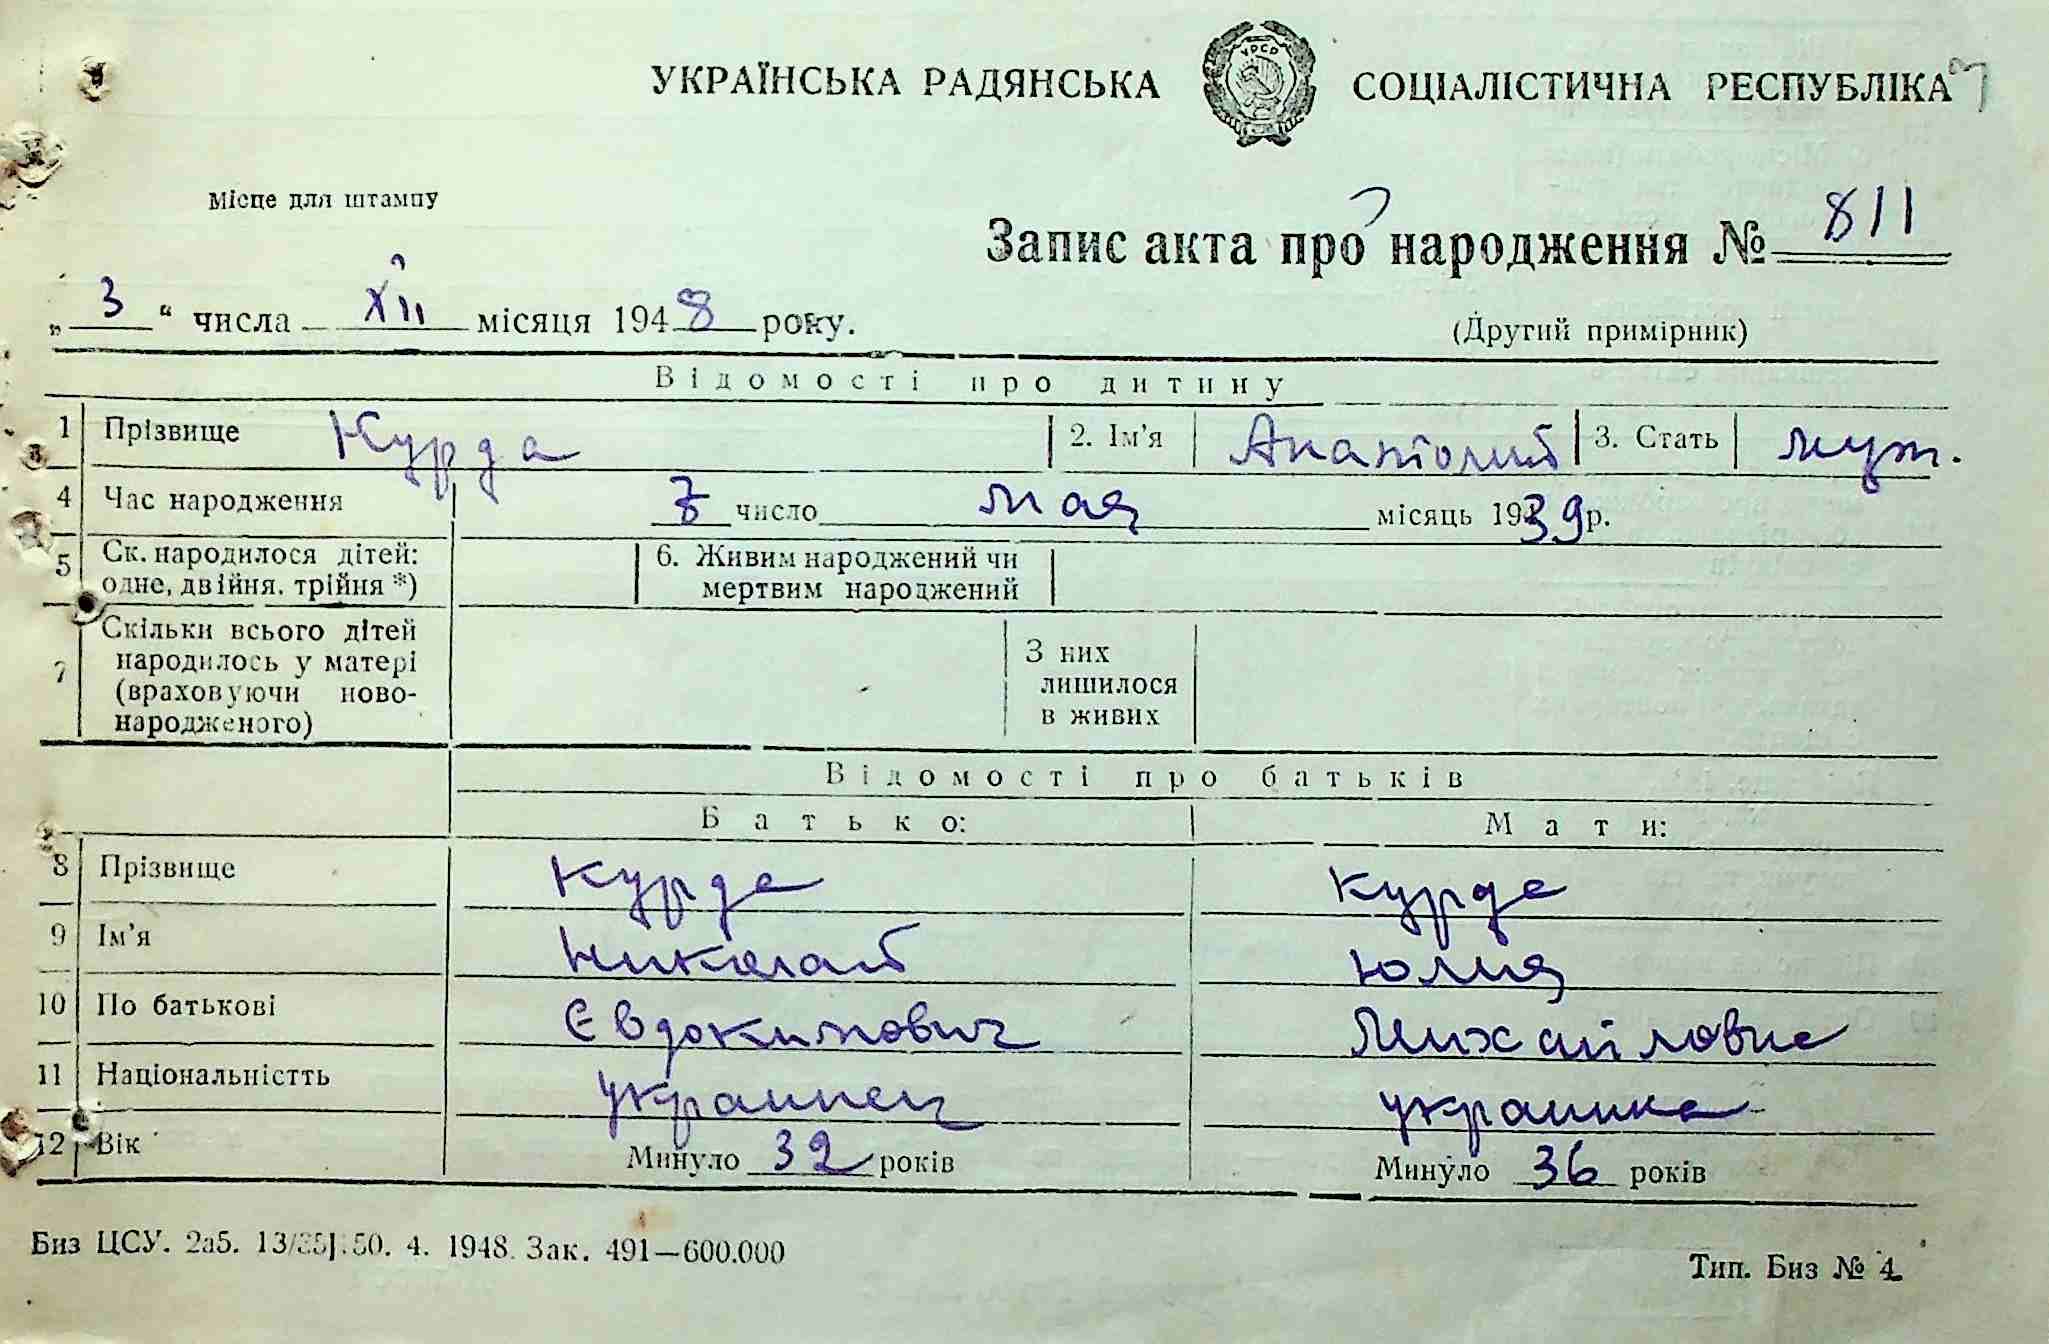 УКРАЇНСЬКА РАДЯНСЬКА СОЦІАЛІСТИЧНА РЕСПУБЛІКА
УРСР
Місце для штампу
Запис акта про народження № 811
„ 3 “ числа XII місяця 1948 року.
(Другий примірник)
Відомості про дитину
1 Прізвище Курда 2. Ім’я Анатолий 3. Стать муж.
4 Час народження число мая місяць 1939 р.
5 Ск. народилося дітей: одне, двійня, трійня *) 6. Живим народжений чи мертвим народжений
7 Скільки всього дітей народилось у матері (враховуючи новонародженого) З них лишилося в живих
Відомості про батьків
Батько: Мати:
8 Прізвище Курда Курда
9 Ім’я Николай Юлия
10 По батькові Євдокимович Михайловна
11 Національністть украинец украинка
12 Вік Минуло 32 років Минуло 36 років
Биз ЦСУ. 2а5. 50. 4. 1948. Зак. 491—600.000
Тип. Биз № 4